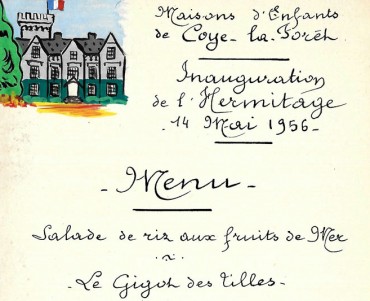 Maisons d'Enfants
de Coye-la-Forêt
Inauguration
de l'Hermitage
14 Mai 1956-
- Menu -
Salade de riz aux fruits de Mer
~
- Le Gigot des Tilles -